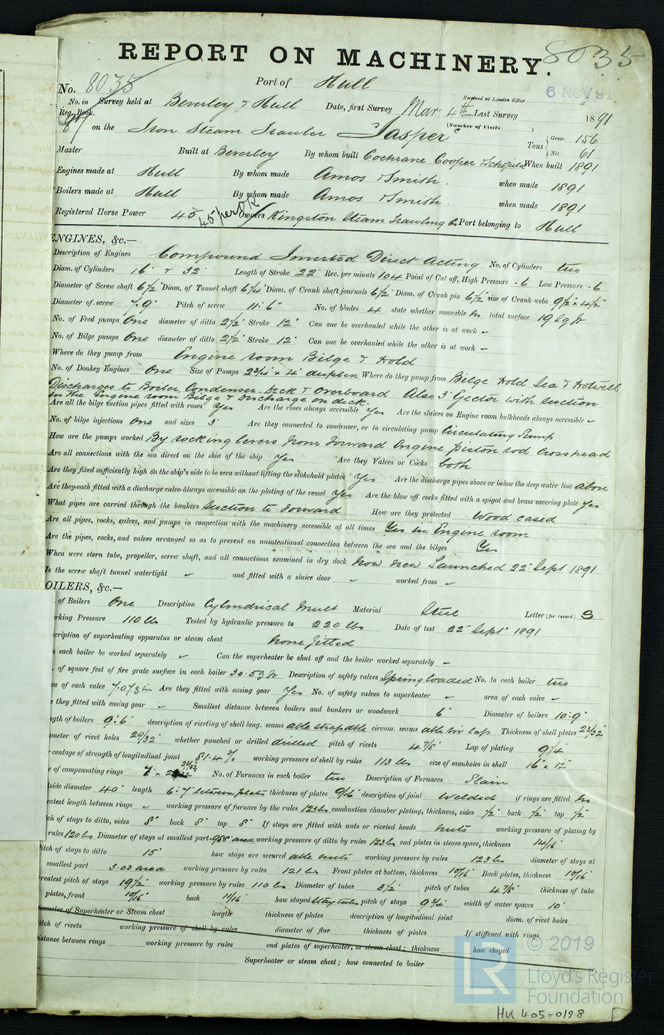 8035
REPORT ON MACHINERY.
No. 8035 Port of Hull
Received at London Office 6 NOV 91
No. in Reg. Book. Survey held at Beverley & Hull Date, first Survey Mar 4th Last Survey 1891
(Number of Visits
on the Iron Steam Trawler Jasper Tons Gross 156 Net 61
Master Built at Beverley By whom built Cochrane Cooper & Schofield When built 1891
Engines made at Hull By whom made Amos & Smith. when made 1891
Boilers made at Hull By whom made Amos & Smith. when made 1891
Registered Horse Power 45 Owners Kingston Steam Trawling Co Port belonging to Hull
ENGINES, &c.—
Description of Engines Compound Inverted Direct Acting No. of Cylinders two
Diam. of Cylinders 16" & 32" Length of Stroke 22" Rev. per minute 104 Point of Cut off, High Pressure .6 Low Pressure .6
Diameter of Screw shaft 6 1/2 Diam. of Tunnel shaft 6 1/4 Diam. of Crank shaft journals 6 1/2 Diam. of Crank pin 6 1/2 size of Crank webs
Diameter of screw 7.9" Pitch of screw 11.6" No. of blades 4 state whether moveable no total surface 19 sq ft
No. of Feed pumps One diameter of ditto 2 1/2" Stroke 12" Can one be overhauled while the other is at work
No. of Bilge pumps One diameter of ditto 2 1/2" Stroke 12" Can one be overhauled while the other is at work
Where do they pump from Engine room Bilge & Hold
No. of Donkey Engines One Size of Pumps duplex Where do they pump from Bilge Hold Sea & Hotwell
Discharges to Boiler, Condenser. Deck & Overboard Also 3" Ejector with suction
in the Engine room Bilge & Discharge on deck.
Are all the bilge suction pipes fitted with roses Yes Are the roses always accessible Yes Are the sluices on Engine room bulkheads always accessible
No. of bilge injections One and sizes 3" Are they connected to condenser, or to circulating pump Circulating Pump
How are the pumps worked By rocking levers from Forward Engine piston rod crosshead
Are all connections with the sea direct on the skin of the ship Yes Are they Valves or Cocks both
Are they fixed sufficiently high on the ship's side to be seen without lifting the stokehold plates Yes Are the discharge pipes above or below the deep water line above
Are they each fitted with a discharge valve always accessible on the plating of the vessel Yes Are the blow off cocks fitted with a spigot and brass covering plate Yes
What pipes are carried through the bunkers Suction to Forward How are they protected Wood cased
Are all pipes, cocks, valves, and pumps in connection with the machinery accessible at all times Yes in Engine room
Are the pipes, cocks, and valves arranged so as to prevent an unintentional connection between the sea and the bilges Yes
When were stern tube, propeller, screw shaft, and all connections examined in dry dock Now New Launched 22nd Sept 1891
Is the screw shaft tunnel watertight and fitted with a sluice door worked from
OILERS, &c.—
of Boilers One Description Cylindrical Mult Material Steel Letter (for record) S
rking Pressure 110 lbs Tested by hydraulic pressure to 220 lbs Date of test 22nd Septr 1891
scription of superheating apparatus or steam chest None fitted
each boiler be worked separately Can the superheater be shut off and the boiler worked separately
of square feet of fire grate surface in each boiler 30.53 ft Description of safety valves Spring loaded No. to each boiler two
ea of each valve 7.073 Are they fitted with easing gear Yes No. of safety valves to superheater area of each valve
e they fitted with easing gear Smallest distance between boilers and bunkers or woodwork 6" Diameter of boilers 10.9"
ngth of boilers 9.6" description of riveting of shell long. seams circum. seams Thickness of shell plates 23/32"
ameter of rivet holes whether punched or drilled drilled pitch of rivets 4 7/8" Lap of plating 9 1/4
centage of strength of longitudinal joint 81.4% working pressure of shell by rules 113 lbs size of manholes in shell 16" x 12"
e of compensating rings No. of Furnaces in each boiler two Description of Furnaces Plain
tside diameter 40" length 6.7" between plates thickness of plates 9/16" description of joint Welded if rings are fitted no
eatest length between rings working pressure of furnace by the rules 123 lbs combustion chamber plating, thickness, sides 1/2" back 1/2" top 1/2"
tch of stays to ditto, sides 8" back 8" top 8" If stays are fitted with nuts or riveted heads nuts working pressure of plating by
rules 120 lbs Diameter of stays at smallest part area working pressure of ditto by rules 123 lbs end plates in steam space, thickness
itch of stays to ditto 15" how stays are secured dble nuts working pressure by rules 123 lbs diameter of stays at
smallest part 3.03 area working pressure by rules 121 lbs Front plates at bottom, thickness Back plates, thickness
reatest pitch of stays working pressure by rules 110 lbs Diameter of tubes 3 1/2" pitch of tubes 4 7/8" thickness of tube
plates, front back 11/16 how stayed Stay tubes pitch of stays 9 3/4" width of water spaces 10"
ameter of Superheater or Steam chest length thickness of plates description of longitudinal joint diam. of rivet holes
itch of rivets working pressure of shell by rules diameter of flue thickness of plates If stiffened with rings
istance between rings working pressure by rules end plates of superheater, or steam chest; thickness how stayed
Superheater or steam chest; how connected to boiler
LR © 2019
Lloyd's Register
Foundation
Hul 405-0198